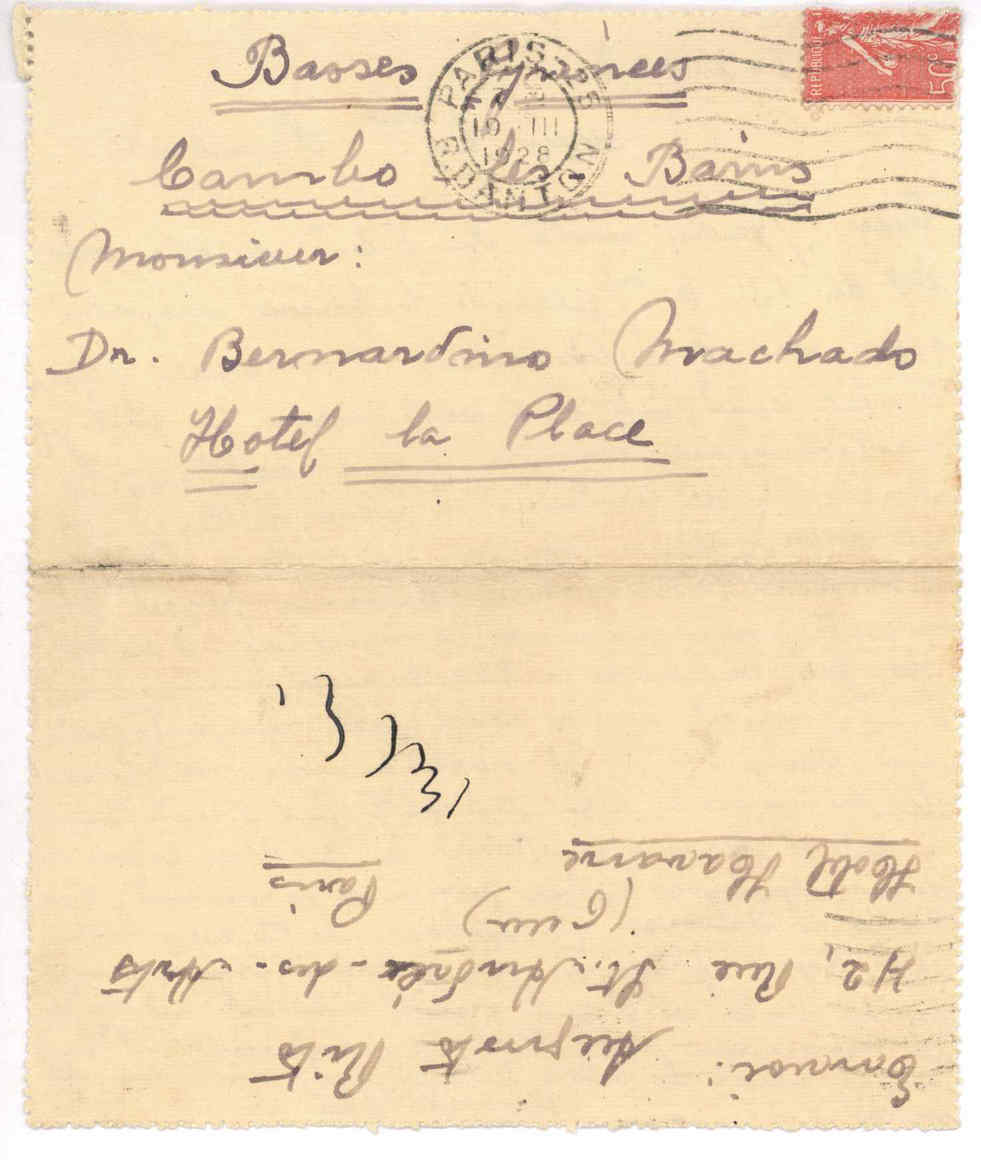 Basses Pyrénées
Cambo les Bains
Monsieur:
Dr. Bernardino Machado
Hotel la Place
PARIS 25
19 III
1928
R. DANTON
REPUBLIQUE
50c
Envoi: Augusto
42, Rue St. André-des-Arts
Paris
Hotel Havane